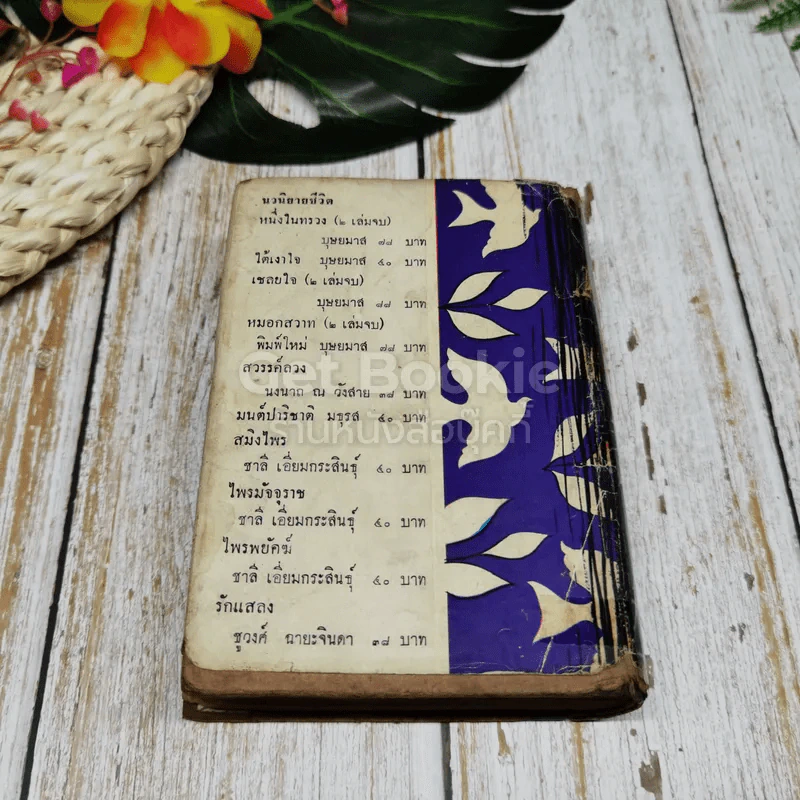 นวนิยายชีวิต
หนึ่งในทรวง (๒ เล่มจบ)
บุษยมาส ๗๘ บาท
ใต้เงาใจ บุษยมาส ๔๐ บาท
เชลยใจ (๒ เล่มจบ)
บุษยมาส ๗๘ บาท
หมอกสวาท (๒ เล่มจบ)
พิมพ์ใหม่ บุษยมาส ๗๘ บาท
สวรรค์ลวง
นงนาถ ณ วังสาย ๓๘ บาท
มนต์ปาริชาติ มธุรส ๔๐ บาท
สมิงไพร
ชาลี เอี่ยมกระสินธุ์ ๔๐ บาท
ไพรมัจจุราช
ชาลี เอี่ยมกระสินธุ์ ๔๐ บาท
ไพรพยัคฆ์
ชาลี เอี่ยมกระสินธุ์ ๔๐ บาท
รักแสลง
ชูวงศ์ ฉายะจินดา ๓๘ บาท
Get Bookie
ร้านหนังสือบุ๊คกี้